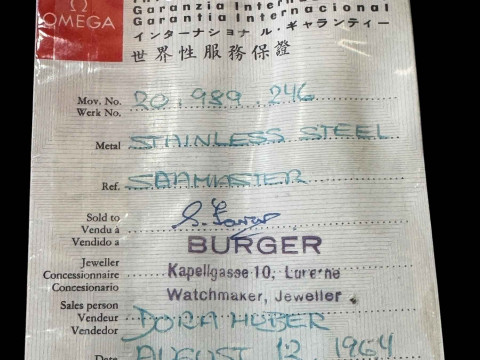 Ω
OMEGA
Garanzia Internazionale
Garantia Internacional
インターナショナル・ギャランティー
世界性服務保證
Mov. No. 20.989.246
Werk No.
Metal STAINLESS STEEL
Ref. SEAMASTER
Sold to
Vendu à
Vendido a
BURGER
Jeweller
Concessionnaire Kapellgasse 10, Lucerne
Concesionario Watchmaker, Jeweller
Sales person
Vendeur DORA HUBER
Vendedor
Date AUGUST 12 1964